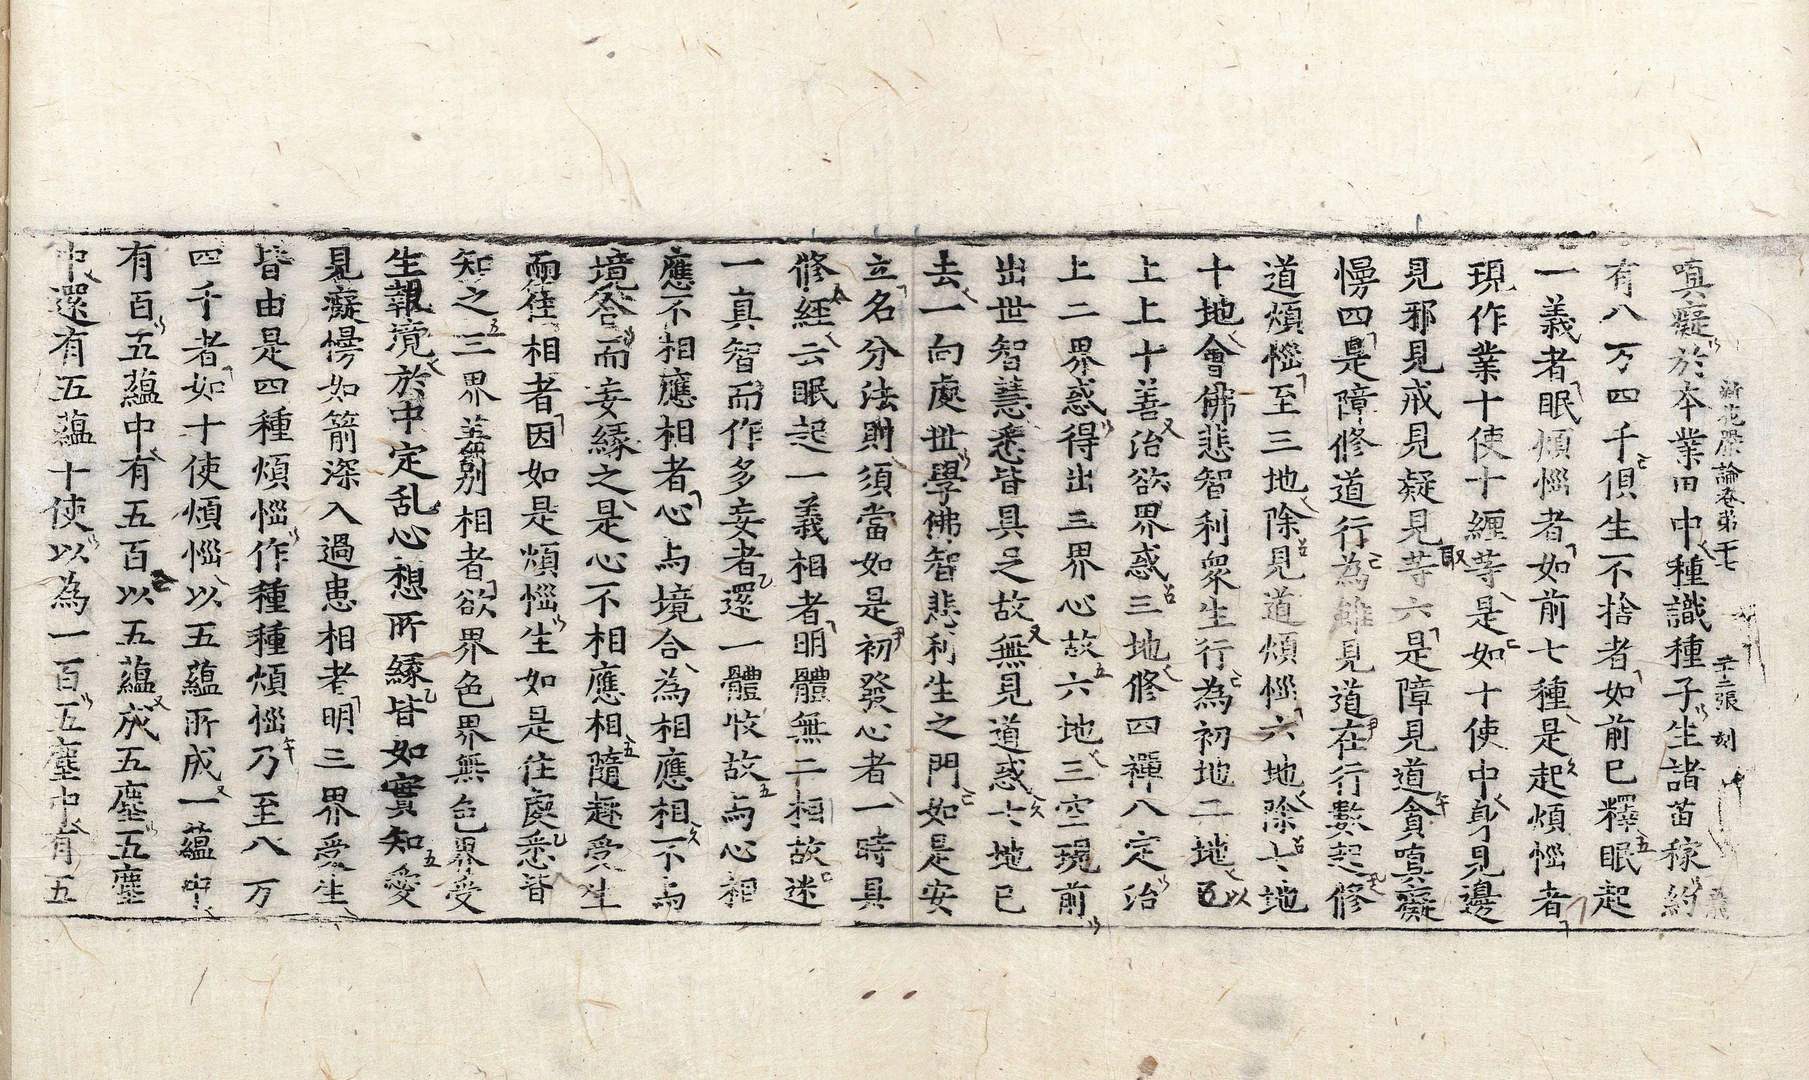 新花嚴論卷第廿七　第二張　刻
嗔癡於本業田中種識種子生諸苗稼約
有八万四千俱生不捨者如前已釋眠起
一義者眠煩惱者如前七種是起煩惱者
現作業十使十纏䒭是如十使中身見邊
見邪見戒見疑見䒭六是障見道貪嗔癡
慢四是障修道行為雖見道在行數起修
道煩惱至三地除見道煩惱六地除七地
十地會佛悲智利衆生行為初地二地已
上上十善治欲界惑三地修四禪八定治
上二界惑得出三界心故六地三空現前
出世智慧悉皆具足故無見道惑七地已
去一向處世學佛智悲利生之門如是安
立名分法則須當如是初發心者一時具
修經云眠起一義相者明體無二相故迷
一真智而作多妄者還一體收故与心相
應不相應相者心与境合為相應相不与
境合而妄緣之是心不相應相隨趣受生
而住相者因如是煩惱生如是住處悉皆
知之三界差別相者欲界色界無色界受
生報境於中定乱心想所緣皆如實知愛
見癡慢如箭深入過患相者明三界受生
皆由是四種煩惱作種種煩惱乃至八万
四千者如十使煩惱以五蘊所成一蘊中
有百五蘊中有五百以五蘊成五塵五塵
中還有五蘊十使以為一百五塵中有五